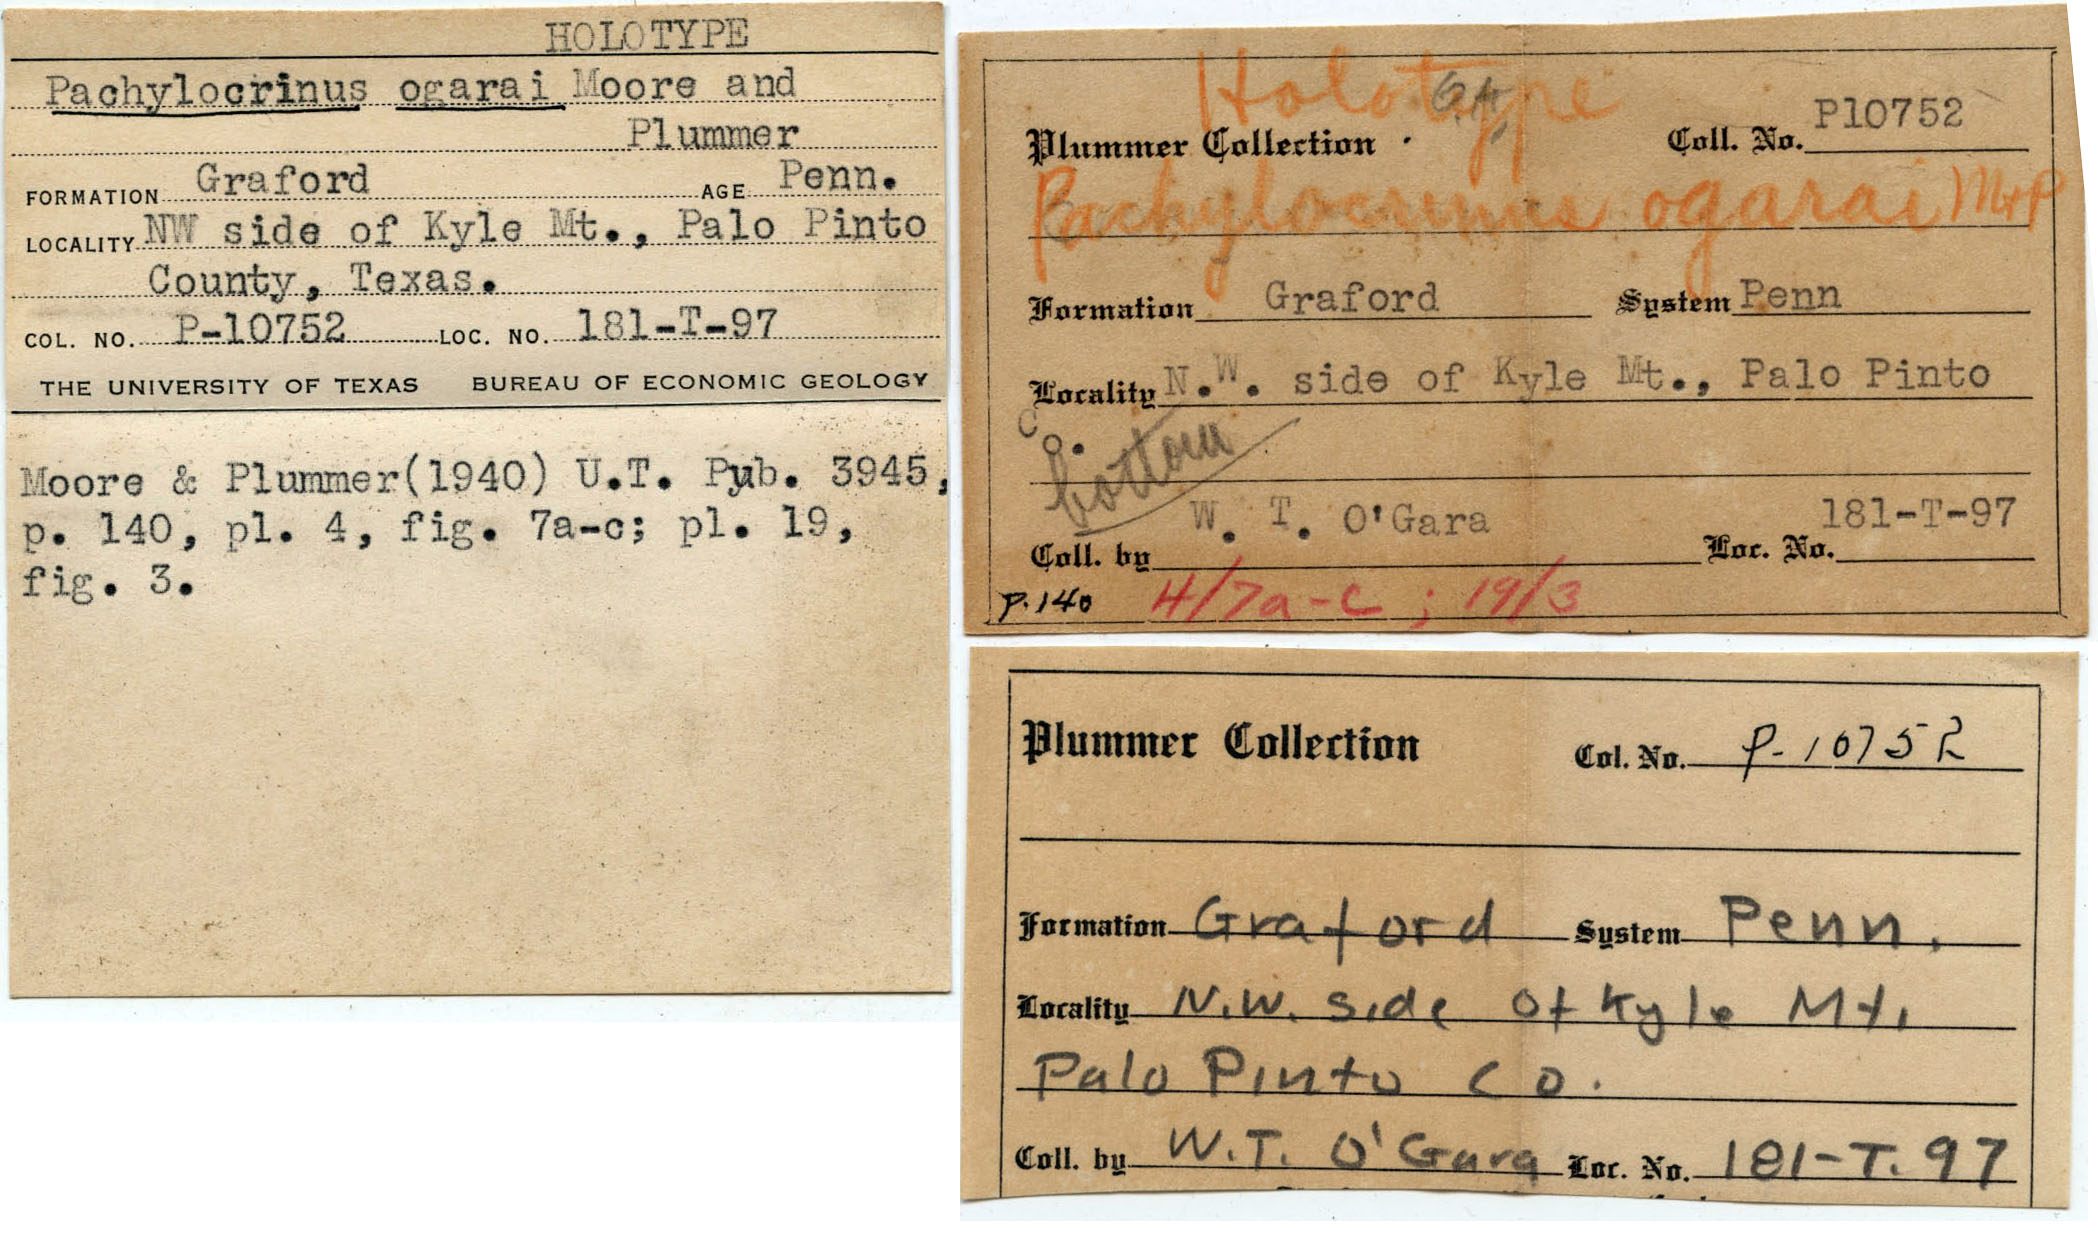 HOLOTYPE
Pachylocrinus ogarai Moore and
Plummer
FORMATION Graford AGE Penn.
LOCALITY NW side of Kyle Mt., Palo Pinto
County, Texas.
COL. NO. P-10752 LOC. NO. 181-T-97
THE UNIVERSITY OF TEXAS BUREAU OF ECONOMIC GEOLOGY
Moore & Plummer(1940) U.T. Pub. 3945,
p. 140, pl. 4, fig. 7a-c; pl. 19,
fig. 3.
Holotype
Plummer Collection Coll. No. P10752
Pachylocrinus ogarai M+P
Formation Graford System Penn
Locality N.W. side of Kyle Mt., Palo Pinto
Co.
bottom
Coll. by W. T. O'Gara Loc. No. 181-T-97
p.140 4/7a-c ; 19/3
Plummer Collection Col. No. P-10752
Formation Graford System Penn.
Locality N.W. side of Kyle Mt.
Palo Pinto Co.
Coll. by W.T. O'Gara Loc. No. 181-T-97